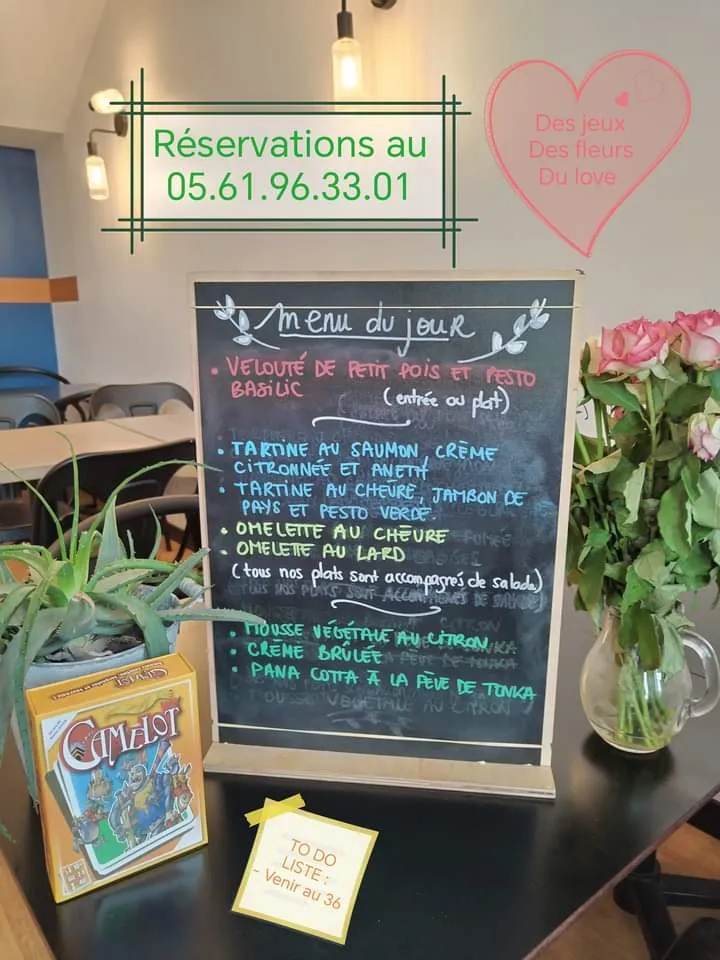 Réservations au
05.61.96.33.01
Des jeux
Des fleurs
Du love
menu du jour
• VELOUTÉ DE PETIT POIS ET PESTO
BASILIC
(entrée ou plat)
• TARTINE AU SAUMON, CRÈME
CITRONNÉE ET ANETH
• TARTINE AU CHÈVRE, JAMBON DE
PAYS ET PESTO VERDE.
• OMELETTE AU CHÈVRE
• OMELETTE AU LARD
(tous nos plats sont accompagnés de salade)
• MOUSSE VÉGÉTALE AU CITRON
• CRÈME BRÛLÉE
• PANA COTTA À LA FÈVE DE TONKA
CAMELOT
CAMELOT
TO DO
LISTE :
- Venir au 36